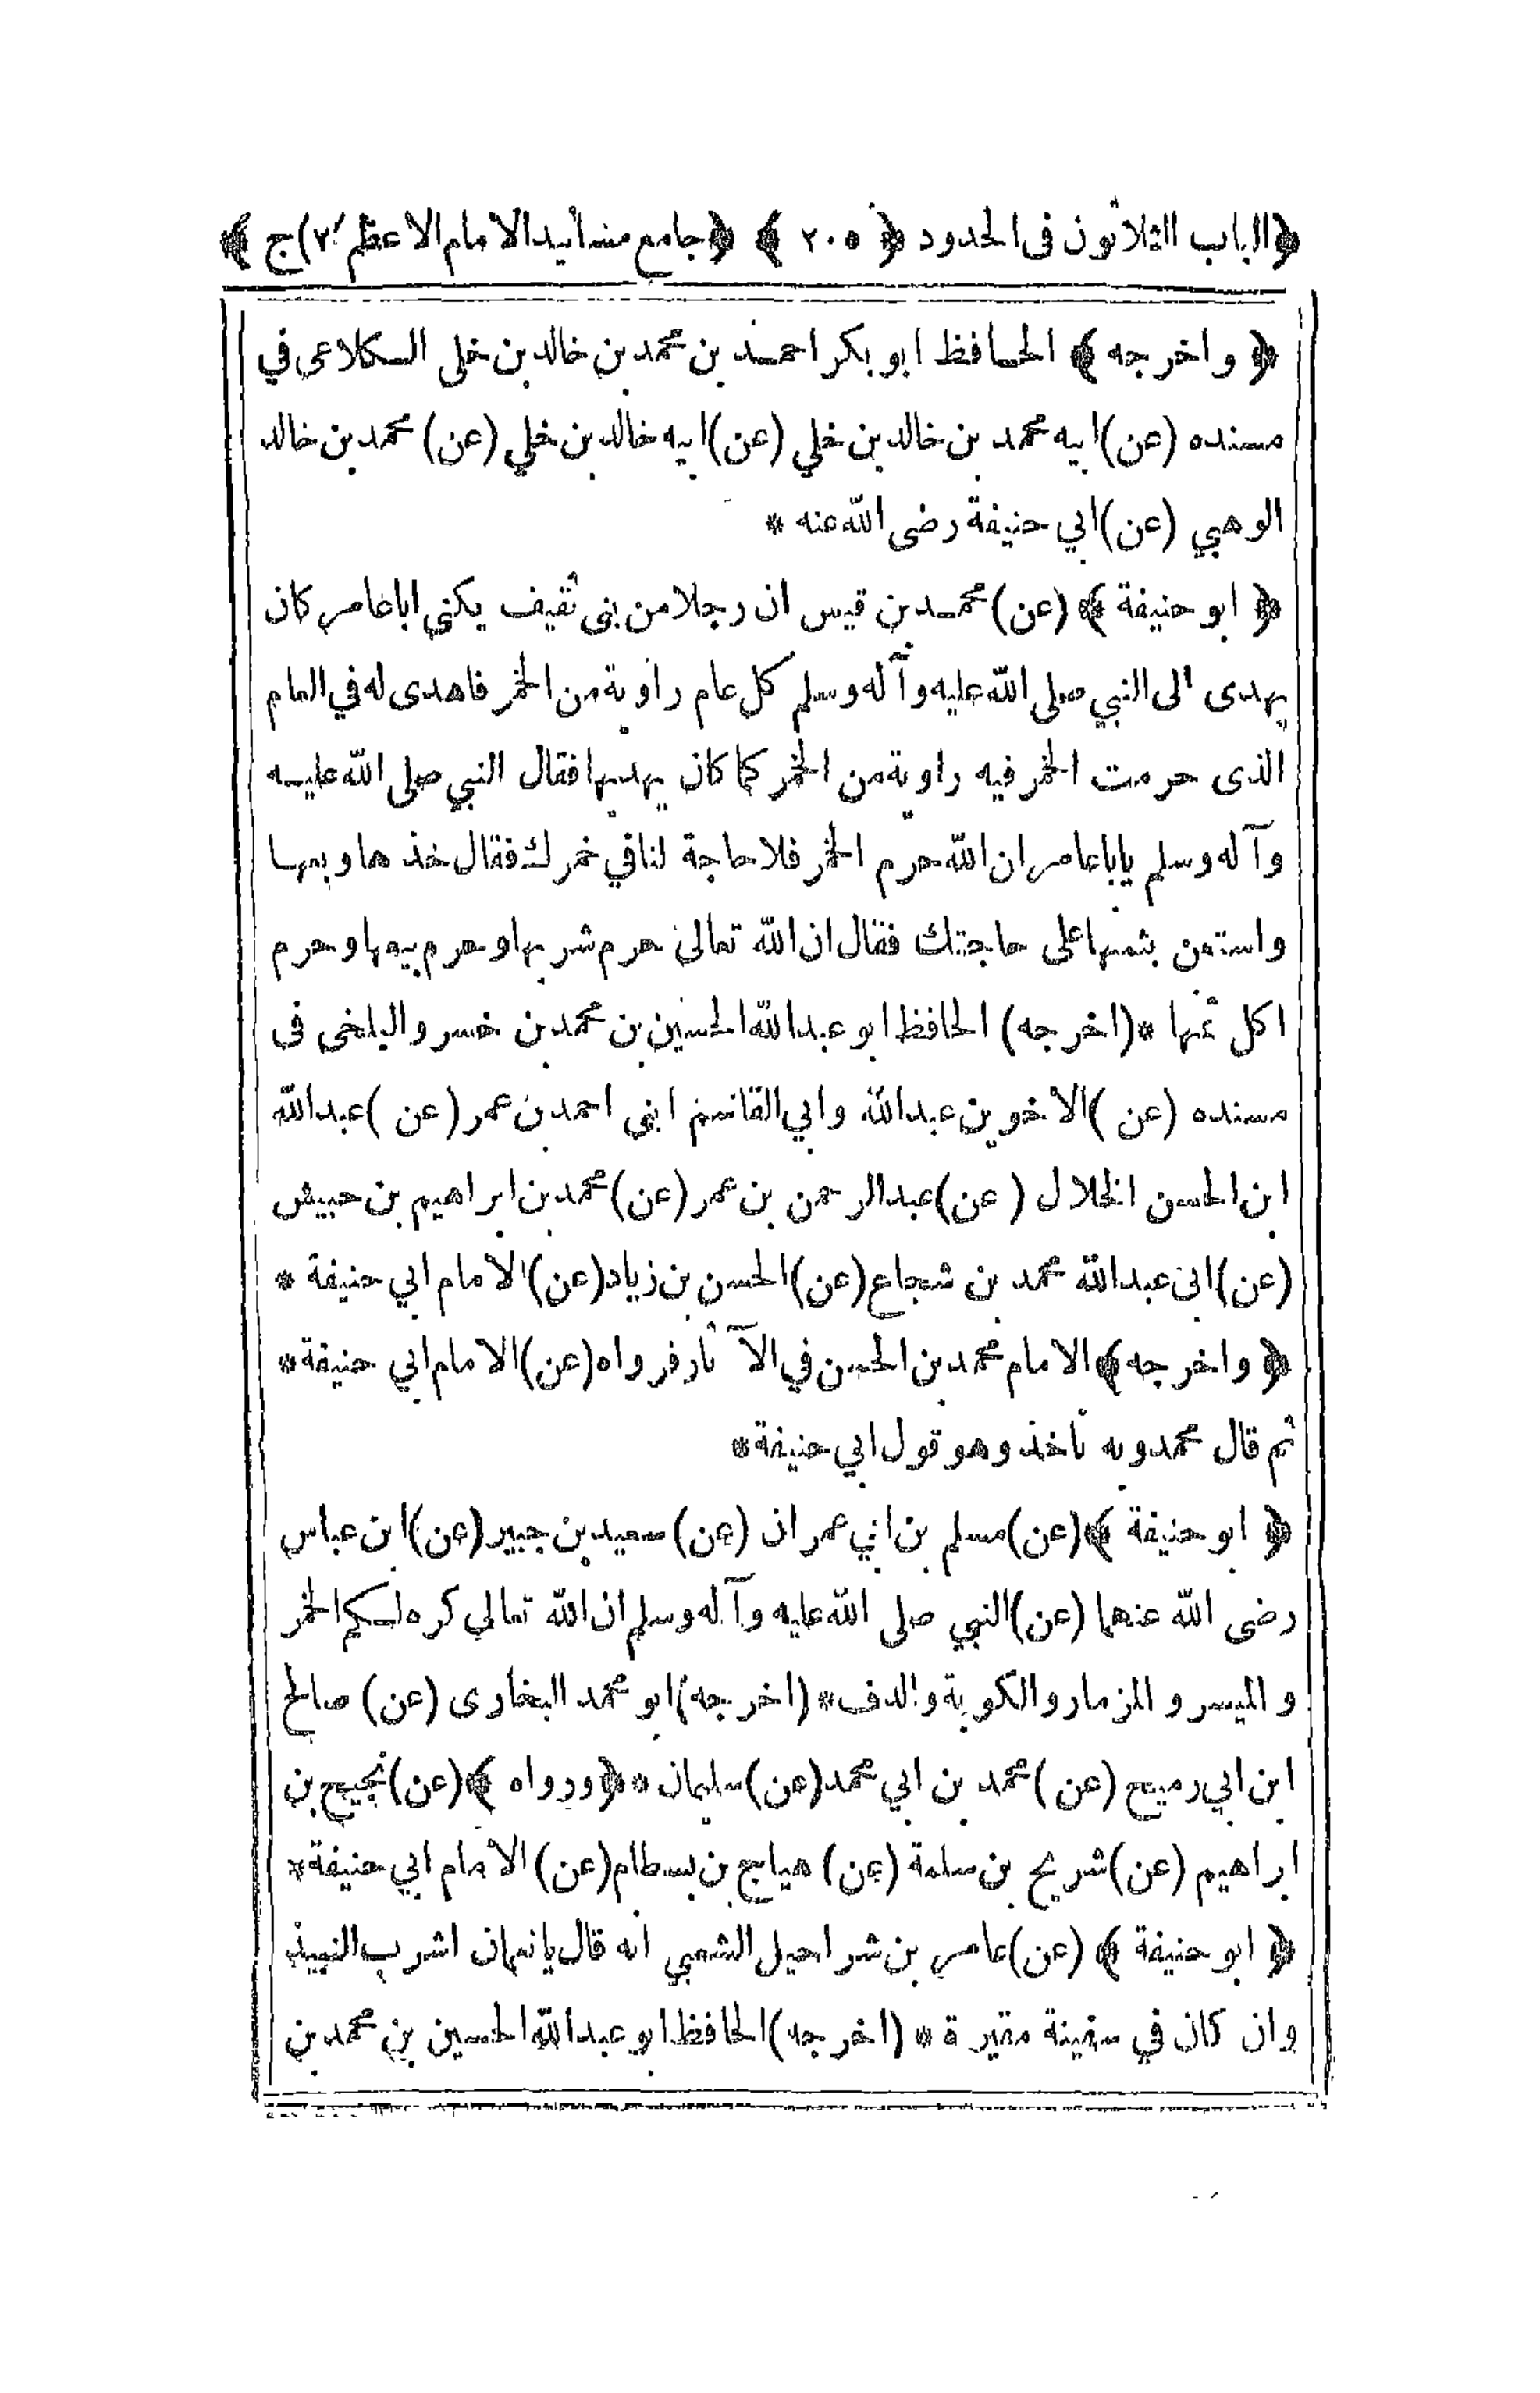 ﴿الباب الثلاثون فى الحدود﴾ ﴿٢٠٥﴾ ﴿جامع مسانيد الامام الاعظم (٢)ج﴾
﴿ واخرجه ﴾ الحافظ ابو بكر احمد بن محمد بن خالد بن خلى الكلاعى في
مسنده (عن) ابيه محمد بن خالد بن خلي (عن) ابيه خالد بن خلي (عن) محمد بن خالد
الوهبي (عن) ابي حنيفة رضى الله عنه *
﴿ ابو حنيفة ﴾ (عن) محمد بن قيس ان رجلا من بنى ثقيف يكنى ابا عامر كان
يهدى الى النبي صلى الله عليه وآله وسلم كل عام راوية من الخمر فاهدى له في العام
الذى حرمت الخمر فيه راوية من الخمر كما كان يهديها فقال النبي صلى الله عليه
وآله وسلم يابا عامر ان الله حرم الخمر فلا حاجة لنا في خمرك فقال خذها وبعها
واستعن بثمنها على حاجتك فقال ان الله تعالى حرم شربها وحرم بيعها وحرم
اكل ثمنها *(اخرجه) الحافظ ابو عبد الله الحسين بن محمد بن خسرو البلخى فى
مسنده (عن) الاخوين عبد الله وابي القاسم ابنى احمد بن عمر (عن) عبد الله
ابن الحسن الخلال (عن) عبد الرحمن بن عمر (عن) محمد بن ابراهيم بن حبيش
(عن) ابى عبد الله محمد بن شجاع (عن) الحسن بن زياد (عن) الامام ابي حنيفة *
﴿ واخرجه ﴾ الامام محمد بن الحسن في الآثار فرواه (عن) الامام ابي حنيفة *
ثم قال محمد وبه نأخذ وهو قول ابي حنيفة *
﴿ ابو حنيفة ﴾ (عن) مسلم بن ابي عمران (عن) سعيد بن جبير (عن) ابن عباس
رضى الله عنهما (عن) النبي صلى الله عليه وآله وسلم ان الله تعالي كره لكم الخمر
والميسر والمزمار والكوبة والدف * (اخرجه) ابو محمد البخارى (عن) صالح
ابن ابي رميح (عن) محمد بن ابي محمد (عن) سليمان * ﴿ورواه ﴾ (عن) نجيح بن
ابراهيم (عن) شريح بن سلمة (عن) هياج بن بسطام (عن) الامام ابي حنيفة *
﴿ ابو حنيفة ﴾ (عن) عامر بن شراحيل الشعبي انه قال يا نعمان اشرب النبيذ
وان كان في سفينة مقيرة * (اخرجه) الحافظ ابو عبد الله الحسين بن محمد بن